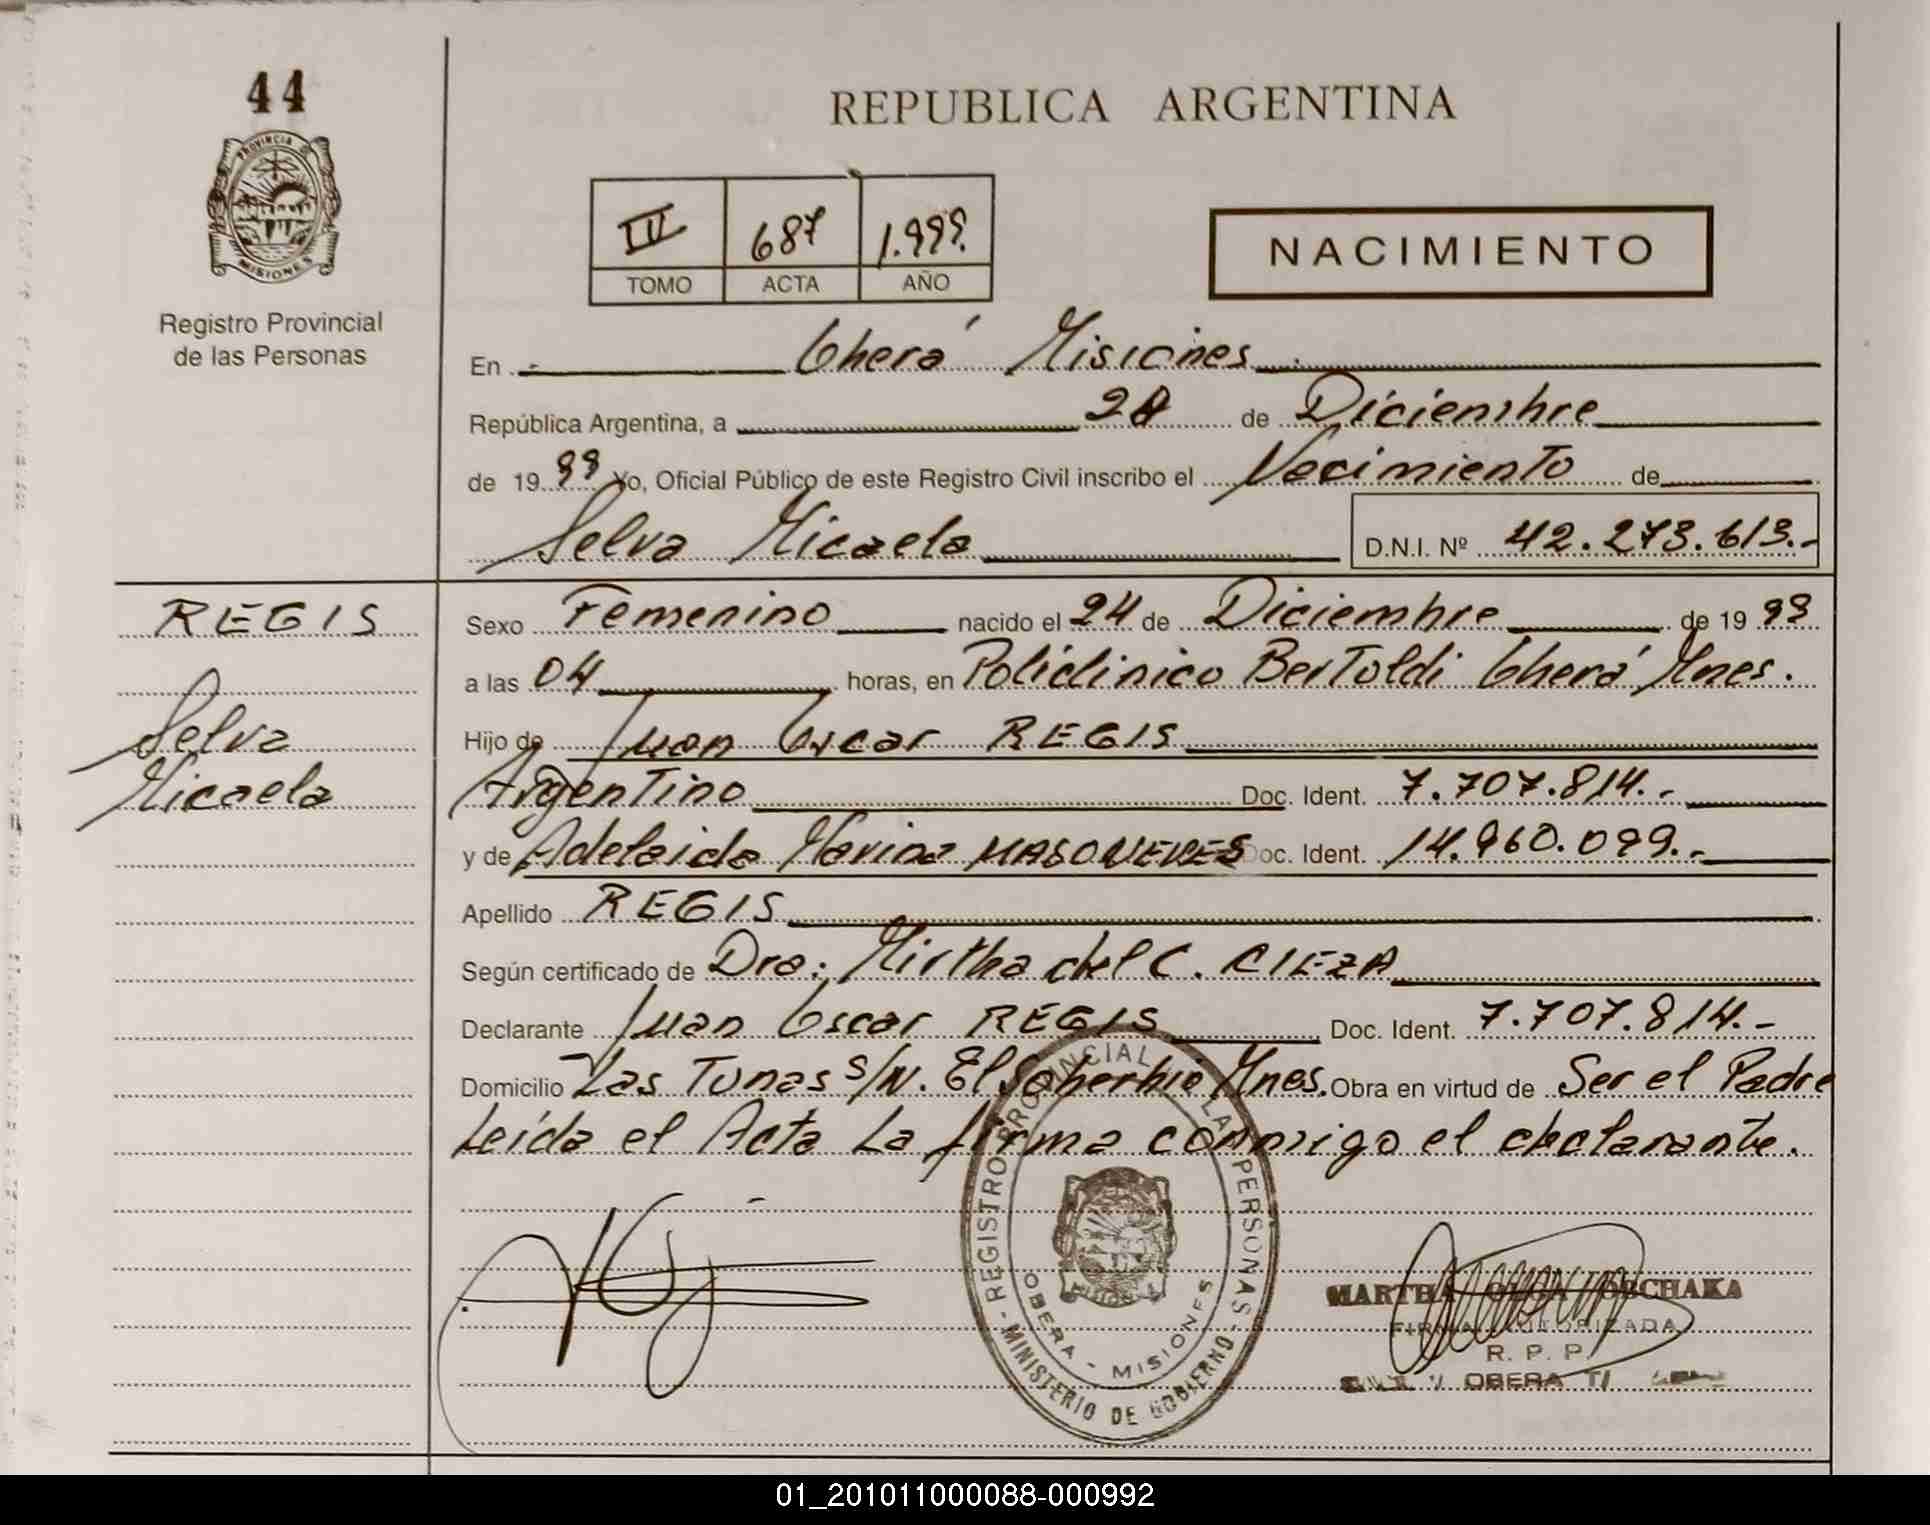 44
PROVINCIA D
MISIONES
Registro Provincial
de las Personas
REPUBLICA ARGENTINA
687 1.999.
TOMO ACTA AÑO
NACIMIENTO
En Oberá Misiones
República Argentina, a 28 de Diciembre
de 1999 Yo, Oficial Público de este Registro Civil inscribo el Nacimiento de
Selva Micaela
D.N.I. Nº 42.273.613.-
REGIS
Selva
Micaela
Sexo Femenino nacido el 24 de Diciembre de 1999
a las 04 horas, en Policlinico Bertoldi Oberá Mnes.
Hijo de Juan Oscar REGIS
Argentino Doc. Ident. 7.707.814.-
y de Adelaida Marina Doc. Ident. 14.960.099.-
Apellido REGIS
Según certificado de Dra: Mirtha del C. CIEZA
Declarante Juan Oscar REGIS Doc. Ident. 7.707.814.-
Domicilio Las Tunas s/N. El Soberbio Mnes. Obra en virtud de Ser el Padre
Leída el Acta La firma conmigo el declarante.
REGISTRO PROVINCIAL LAS PERSONAS
OBERA - MISIONES
MINISTERIO DE GOBIERNO
MARTHA OLGA
FIRMA AUTORIZADA
R. P. P.
OBERA
01_201011000088-000992